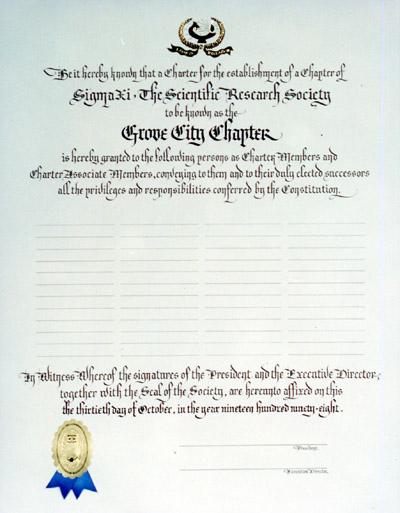 Be it hereby known that a Charter for the establishment of a Chapter of
Sigma Xi · The Scientific Research Society
to be known as the
Grove City Chapter
is hereby granted to the following persons as Charter Members and
Charter Associate Members, conveying to them and to their duly elected successors
all the privileges and responsibilities conferred by the Constitution.
In Witness Whereof the signatures of the President and the Executive Director,
together with the Seal of the Society, are hereunto affixed on this
the thirtieth day of October, in the year nineteen hundred ninety-eight.
President
Executive Director